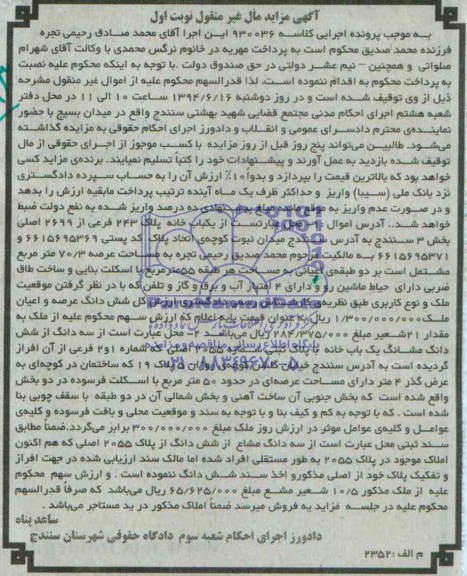 آگهی مزایده مال غیر منقول نوبت اول
به موجب پرونده اجرایی کلاسه ۹۳۰۰۳۶ این اجرا آقای محمد صادق رحیمی تجره
فرزند محمد صدیق محکوم است به پرداخت مهریه در خانوم نرگس محمدی با وکالت آقای شهرام
صلواتی و همچنین – نیم عشر دولتی در حق صندوق دولت .با توجه به اینکه محکوم علیه نصبت
به پرداخت محکوم به اقدام ننموده است، لذا قدرالسهم محکوم علیه از اموال غیر منقول مشرحه
ذیل از وی توقیف شده است و در روز دوشنبه ۱۳۹۴/۶/۱۶ ساعت ۱۰ الی ۱۱ در محل دفتر
شعبه هشتم اجرای احکام مدنی مجتمع قضایی شهید بهشتی سنندج واقع در میدان بسیج با حضور
نماینده‌ی محترم دادسرای عمومی و انقلاب و دادورز اجرای احکام حقوقی به مزایده گذاشته
می‌شود. طالبین می‌تواند پنج روز قبل از روز مزایده با کسب موجوز از اجرای حقوقی از مال
توقیف شده بازدید به عمل آورند و پیشنهادات خود را کتباً تسلیم نمایند. برنده‌ی مزاید کسی
خواهد بود که بالاترین قیمت را بپردازد و بدوا ۱۰٪ ارزش آن را به حساب سپرده دادگستری
نزد بانک ملی (سیبا) واریز و حداکثر ظرف یک ماه آینده ترتیب پرداخت مابقیه ارزش را بدهد
و در صورت عدم واریز به موقع مانده مبلغ ده درصد واریز شده به نفع دولت ضبط
خواهد شد.. آدرس اموال عبارتست از یکباب خانه پلاک ۲۴۳ فرعی از ۲۶۹۹ اصلی
بخش ۳ سنندج به آدرس سنندج میدان نبوت کوچه‌ی اتحاد پلاک کد پستی ۶۶۱۵۶۹۵۳۶۹ و
۶۶۱۵۶۹۵۳۷۱ به مالکیت مرحوم محمد صدیق رحیمی تجره به مساحت عرصه ۷۰/۳ متر مربع
مشتمل است بر دو طبقه‌ی اعیانی به مساحت هر طبقه ۵۵مترمربع با اسکلت بنایی و ساخت طاق
ضربی دارای حیاط ماشین رو و دارای ۴ امتیاز آب و برق و گاز و تلفن که با در نظر گرفتن موقعیت
ملک و نوع کاربری طبق نظریه کارشناس رسمی دادگستری ارزش کل شش دانگ عرصه و اعیان
ملک ۱/۳۰۰/۰۰۰/۰۰۰ ریال به عنوان قیمت پایه اعلام که ارزش سهم محکوم علیه از ملک به
مقدار ۲۱ شعیر مبلغ ۲۸۴/۳۷۵/۰۰۰ ریال می‌باشد ۲– محل عبارت است از سه دانگ از شش
دانگ مشانگ یک باب خانه با پلاک ثبتی شماره ۲۰۵۵ اصلی که شماره ۱و۲ فرعی از آن افراز
گردیده است به آدرس سنندج خیابان پلاک ۱۹ که ساختمان در کوچه‌ای به
عرض گذر ۴ متر دارای مساحت عرصه‌ای در حدود ۵۰ متر مربع با اسکلت فرسوده در دو بخش
واقع شده است که بخش جنوبی آن ساخت آهنی و بخش شمالی آن در دو طبقه با سقف چوبی بنا
شده است . که با توجه به کم و کیف بنا و با توجه به سند و موقعیت محلی و بافت فرسوده و کلیه‌ی
عوامل و کلیه‌ی عوامل موثر در ارزش روز ملک مبلغ ۳۰۰/۰۰۰/۰۰۰ برابر می‌گردد.ضمناً مطابق
سند ثبتی محل عبارت است از سه دانگ مشاع از شش دانگ از پلاک ۲۰۵۵ اصلی که هم اکنون
املاک موجود در پلاک ۲۰۵۵ به طور مستقلی افراد شده اما مالک سند ارزیابی شده در جهت افراز
و تفکیک پلاک خود از اصلی مذکورو اخذ سند شش دانگ ننموده است . و ارزش سهم محکوم
علیه از ملک مذکور ۱۰/۵ شعیر مشع مبلغ ۶۵/۶۲۵/۰۰۰ ریال می‌باشد که صرفاً قدرالسهم
محکوم علیه در جلسه مزاید به فروش میرسد ضمناً املاک مذکور در ید مستاجر می‌باشد .
ساعد پناه
دادورز اجرای احکام شعبه سوم دادگاه حقوقی شهرستان سنندج
م الف :۲۳۵۲
پایگاه اطلاع رسانی مناقصه و مزایده
۰۲۱-۸۸۳۴۹۶۷۰-۵